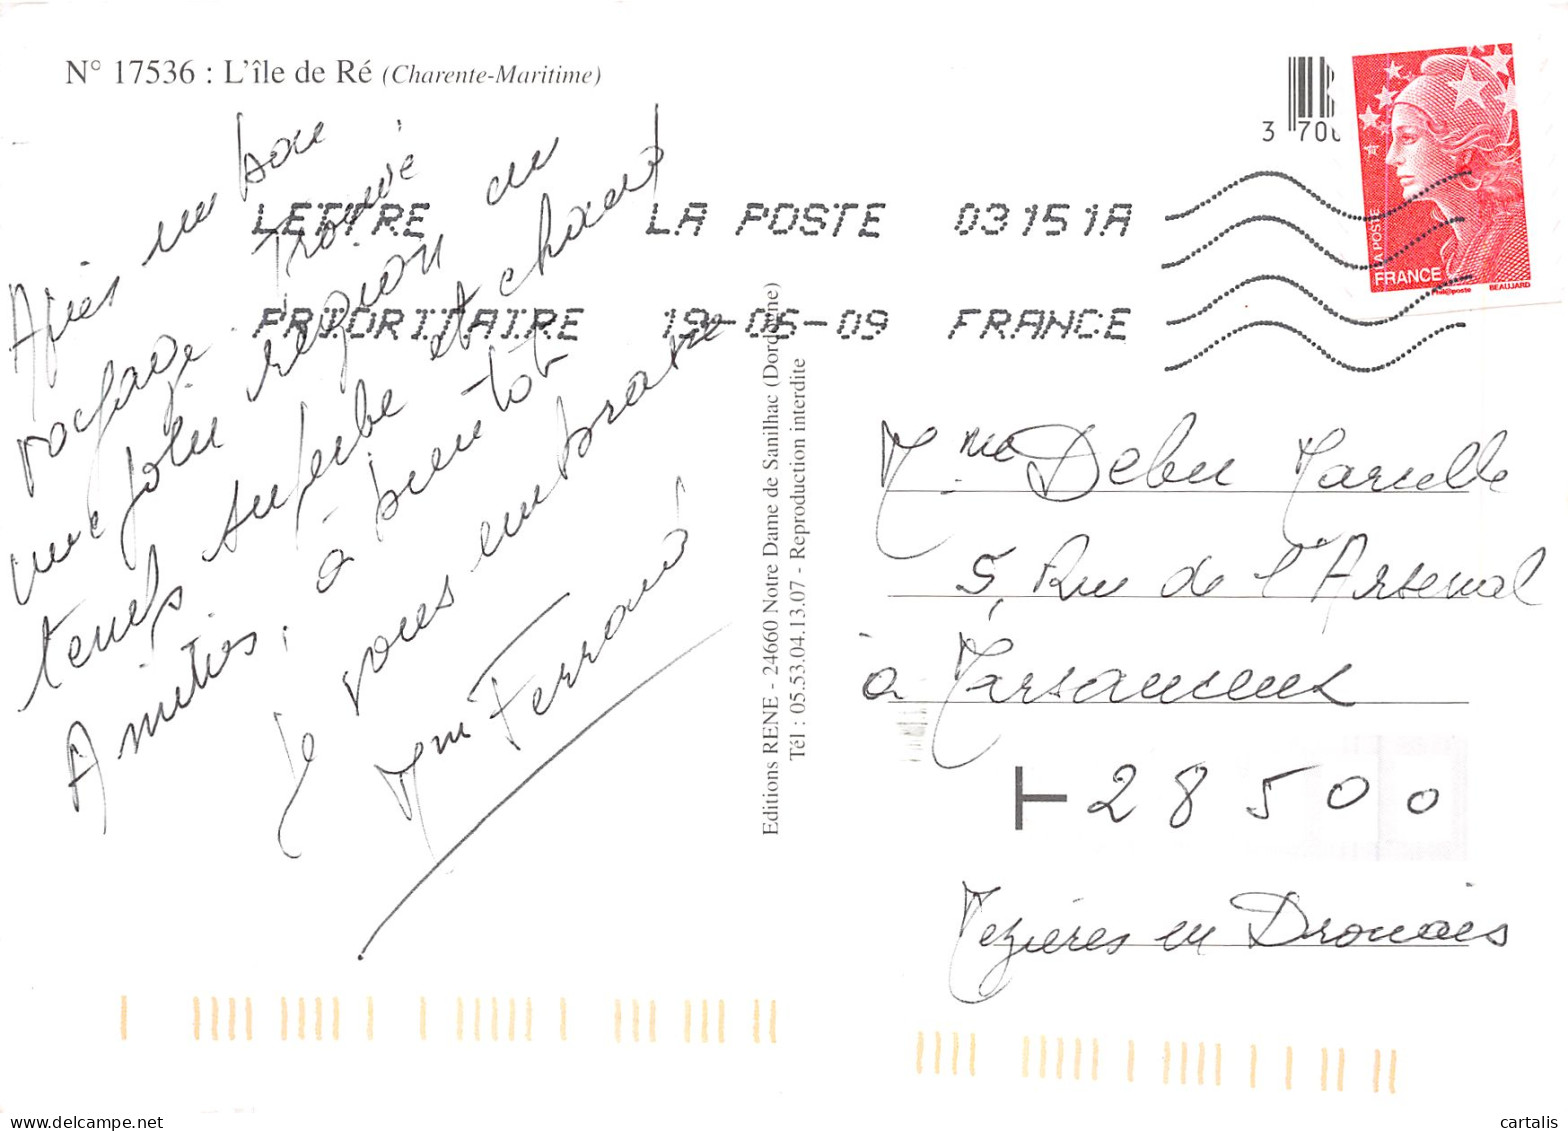 N° 17536 : L'île de Ré (Charente-Maritime)
3 700
LETTRE LA POSTE 03151A
PRIORITAIRE 19-05-09 FRANCE
LA POSTE
FRANCE
Phil@poste BEAUJARD
Après un bon
voyage. Trouvé
une jolie région un
temps superbe et chaud
Amitiés, à bientôt
Je vous embrasse
Mme Ferrand
Editions RENE - 24660 Notre Dame de Sanilhac (Dordogne)
Tél : 05.53.04.13.07 - Reproduction interdite
Mme Debu Marcelle
5, Rue de l'Arsenal
à Marsauceux
28500
Mezières en Drouais
cartalis